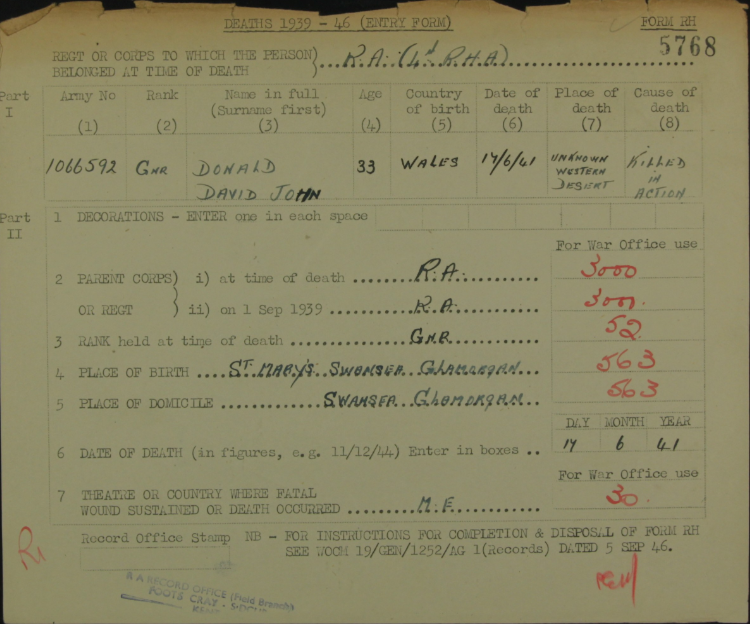 DEATHS 1939 - 46 (ENTRY FORM)
FORM RH
5768
REGT OR CORPS TO WHICH THE PERSON)
BELONGED AT TIME OF DEATH ) ... R.A. (4th R.H.A)
Part I
Army No (1) Rank (2) Name in full (Surname first) (3) Age (4) Country of birth (5) Date of death (6) Place of death (7) Cause of death (8)
1066592 GNR DONALD DAVID JOHN 33 WALES 17/6/41 UNKNOWN WESTERN DESERT KILLED IN ACTION
Part II
1 DECORATIONS - ENTER one in each space
For War Office use
2 PARENT CORPS) i) at time of death ....... R.A. .......... 3000
OR REGT ) ii) on 1 Sep 1939 ........ R.A. .......... 3000.
3 RANK held at time of death .............. GNR .......... 52
4 PLACE OF BIRTH .... ST MARY'S SWANSEA GLAMORGAN 563
5 PLACE OF DOMICILE ............ SWANSEA GLAMORGAN 563
DAY MONTH YEAR
6 DATE OF DEATH (in figures, e.g. 11/12/44) Enter in boxes .. 17 6 41
For War Office use
7 THEATRE OR COUNTRY WHERE FATAL
WOUND SUSTAINED OR DEATH OCCURRED ........ M.E. ......... 30.
Record Office Stamp NB - FOR INSTRUCTIONS FOR COMPLETION & DISPOSAL OF FORM RH
SEE WOCH 19/GEN/1252/AG 1(Records) DATED 5 SEP 46.
R A RECORD OFFICE (Field Branch)
FOOTS CRAY - SIDCUP
KENT